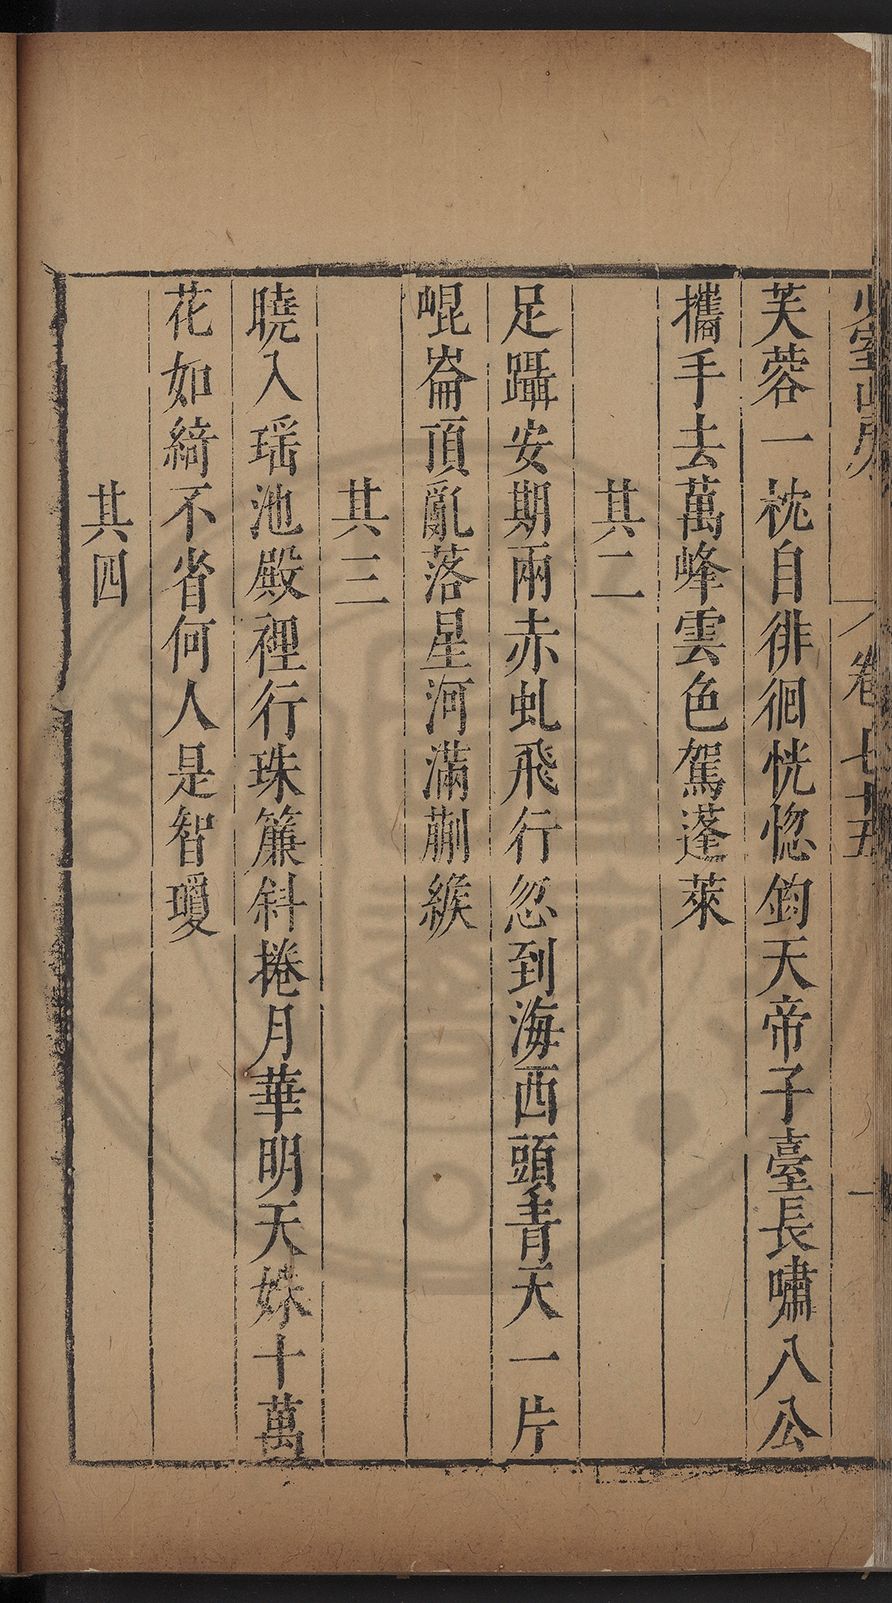 少室山房 卷七十五 一
芙蓉一枕自徘徊恍惚鈞天帝子臺長嘯八公
攜手去萬峰雲色駕蓬萊
其二
足躡安期兩赤虬飛行忽到海西頭青天一片
崐崙頂亂落星河滿蒯緱
其三
曉入瑶池殿裡行珠簾斜捲月華明天姝十萬
花如綺不省何人是智瓊
其四